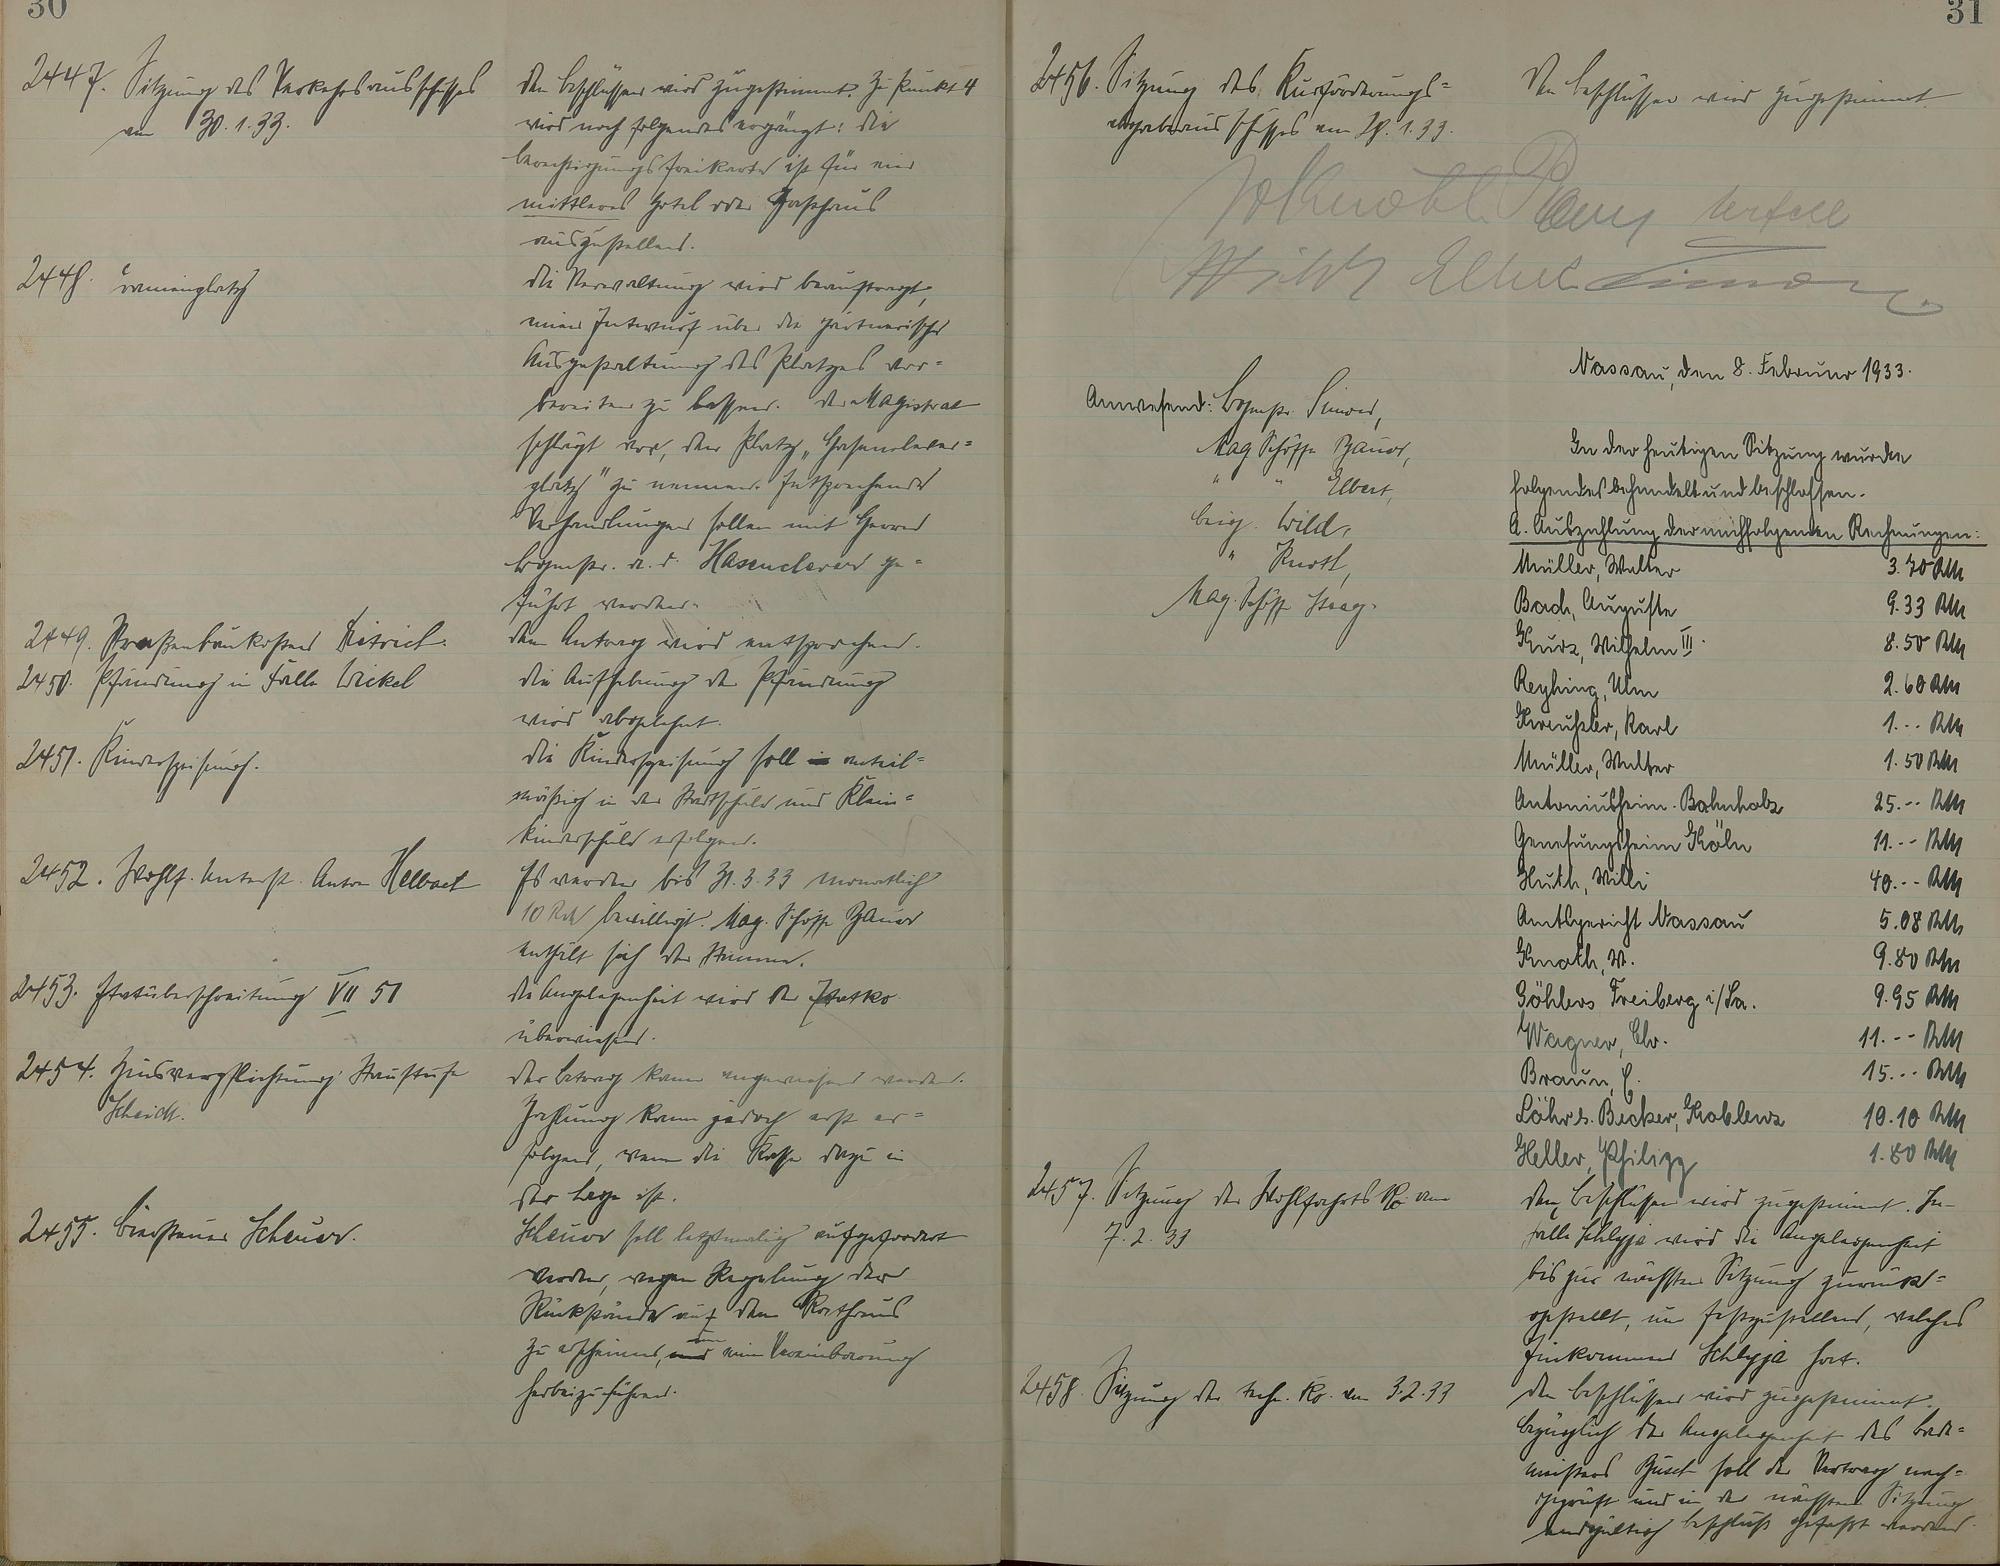 30
2447. Sitzung des Verkehrsausschusses
am 30.1.33.
Den Beschlüssen wird zugestimmt. Zu Punkt 4
wird noch folgendes ergänzt: die
Berechtigungsfreikarte ist für ein
mittleres Hotel oder Gasthaus
auszustellen.
2448.
Die Verwaltung wird beauftragt,
einen Entwurf über die gärtnerische
Ausgestaltung des Platzes vor=
bereiten zu lassen. Der Magistrat
schlägt vor, den Platz „Hasenclever=
platz" zu nennen. Entsprechende
Verhandlungen sollen mit Herrn
Bgmstr. a. d. Hasenclever ge=
führt werden.
2449. Straßenbaukosten Dietrich.
Dem Antrag wird entsprochen.
2450. Pfändung in Falle Wickel
Die Aufhebung der Pfändung
wird abgelehnt.
2451. Kinderspeisung.
Die Kinderspeisung soll anteil=
mäßig in der Stadtschule und Klein=
kinderschule erfolgen.
2452. Wohlf. Unterst. Anton Helbach
Es werden bis 31.3.33 monatlich
10 RM bewilligt. Mag. Schöffe Bauer
enthält sich der Stimme.
2453. Etatüberschreitung VII 51
Die Angelegenheit wird der Etatko
überwiesen.
2454. Zinsverpflichtung Staustufe
Scheidt.
Der Betrag kann angewiesen werden.
Zahlung kann jedoch erst er=
folgen, wenn die Kasse dazu in
der Lage ist.
2455. Biersteuer Scheuer.
Scheuer soll letztmalig aufgefordert
werden, wegen Regelung der
Rückstände auf dem Rathaus
zu erscheinen, um eine Vereinbarung
herbeizuführen.
31
2456. Sitzung des Kurförderungs=
abgabeausschusses am 31.1.33.
Den Beschlüssen wird zugestimmt.
Elbert Simon
Nassau, den 8. Februar 1933.
Anwesend: Bgmstr. Simon,
Mag Schöffe Bauer,
" " Elbert,
beig. Wild,
" Knoth,
Mag. Schöffe Haag.
In der heutigen Sitzung wurde
folgendes behandelt und beschlossen.
A. Auszahlung der nachfolgenden Rechnungen:
Müller, Walter 3.70 RM
Bach, Auguste 9.33 RM
Kurz, Wilhelm III. 8.50 RM
Reyhing, Ulm 2.60 RM
Kreußler, Karl 1.-- RM
Müller, Walter 1.50 RM
Antoniusheim Bahnholz 25.-- RM
Genesungsheim Köln 11.-- RM
Huth, Willi 40.-- RM
Amtsgericht Nassau 5.08 RM
Knoth, W. 9.80 RM
Göhlers Freiberg i/Sa. 9.95 RM
Wagner, Chr. 11.-- RM
Braun, E. 15.-- RM
Löhr & Becker, Koblenz 10.10 RM
Heller, Philipp 1.80 RM
2457. Sitzung der Wohlfahrts Ko. am
7.2.33
Den Beschlüssen wird zugestimmt. Im
Falle Schlyja wird die Angelegenheit
bis zur nächsten Sitzung zurück=
gestellt, um festzustellen, welches
Einkommen Schlyja hat.
2458. Sitzung der techn. Ko. am 3.2.33
Den Beschlüssen wird zugestimmt.
Bezüglich der Angelegenheit des Bade=
meisters Busch soll der Vertrag nach=
geprüft und in der nächsten Sitzung
endgültig Beschluß gefaßt werden.